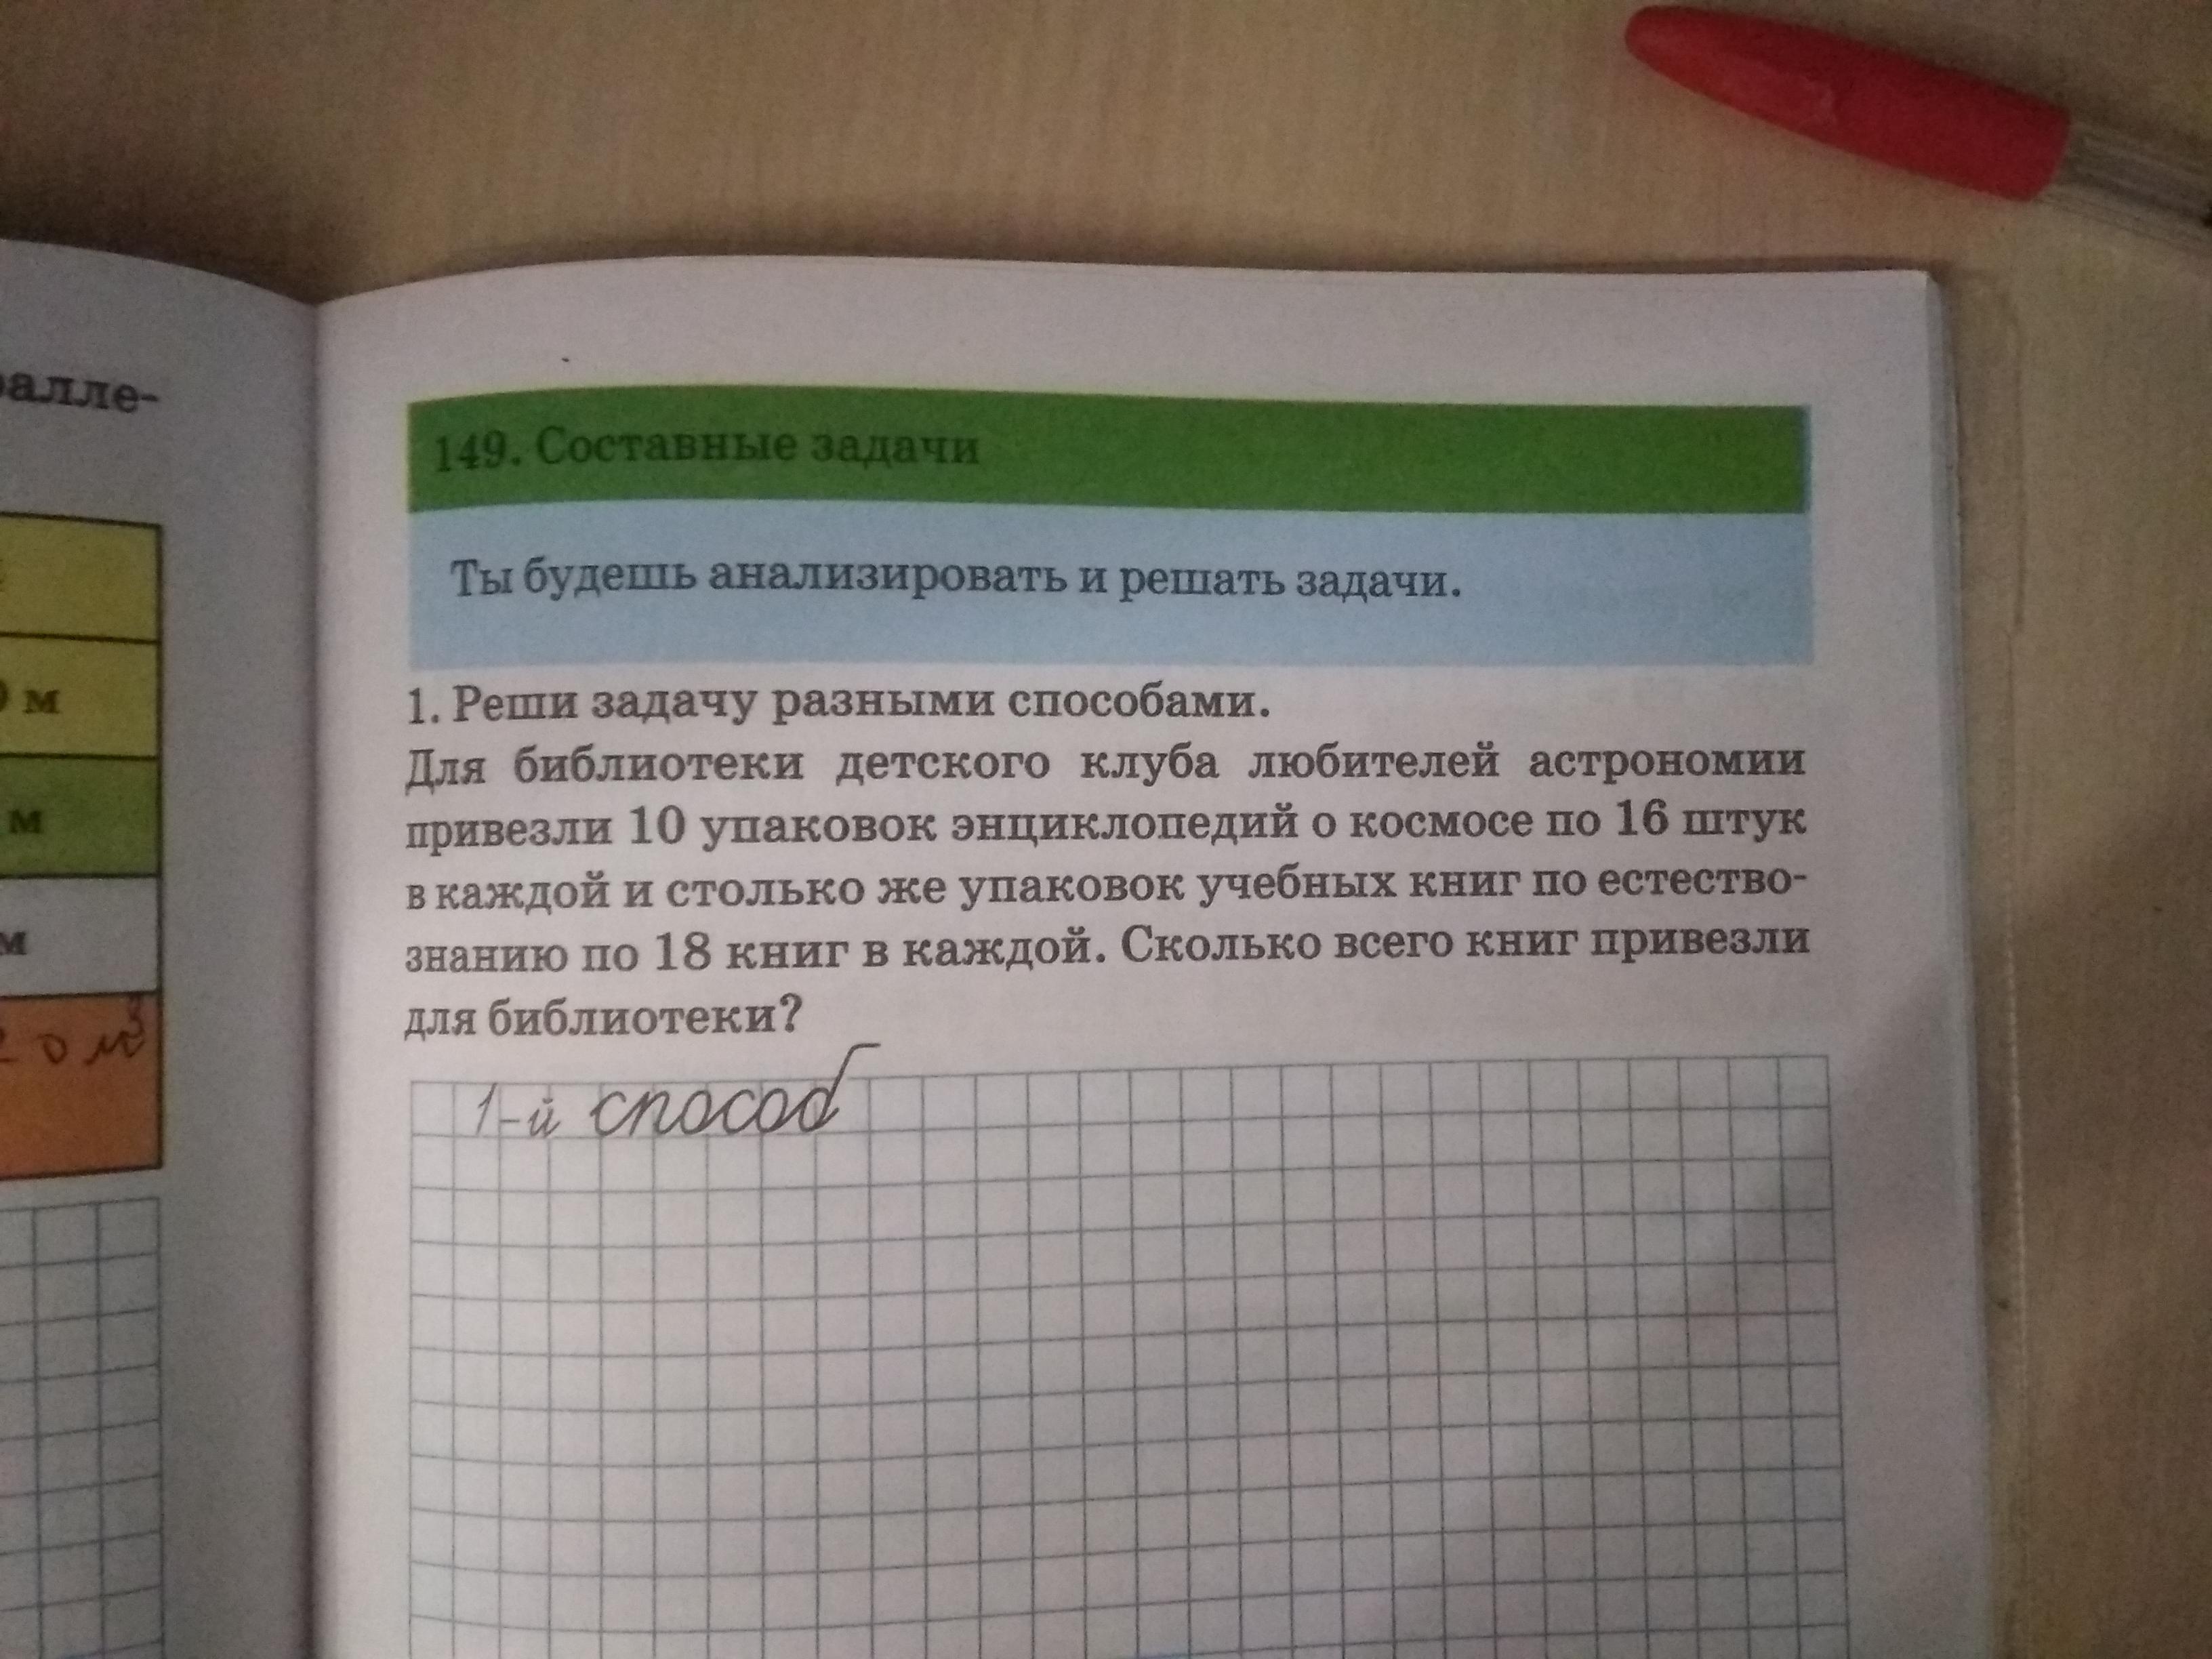 ралле-
0 м
м
м
2 0 м³
149. Составные задачи
Ты будешь анализировать и решать задачи.
1. Реши задачу разными способами.
Для библиотеки детского клуба любителей астрономии
привезли 10 упаковок энциклопедий о космосе по 16 штук
в каждой и столько же упаковок учебных книг по естество-
знанию по 18 книг в каждой. Сколько всего книг привезли
для библиотеки?
1-й способ